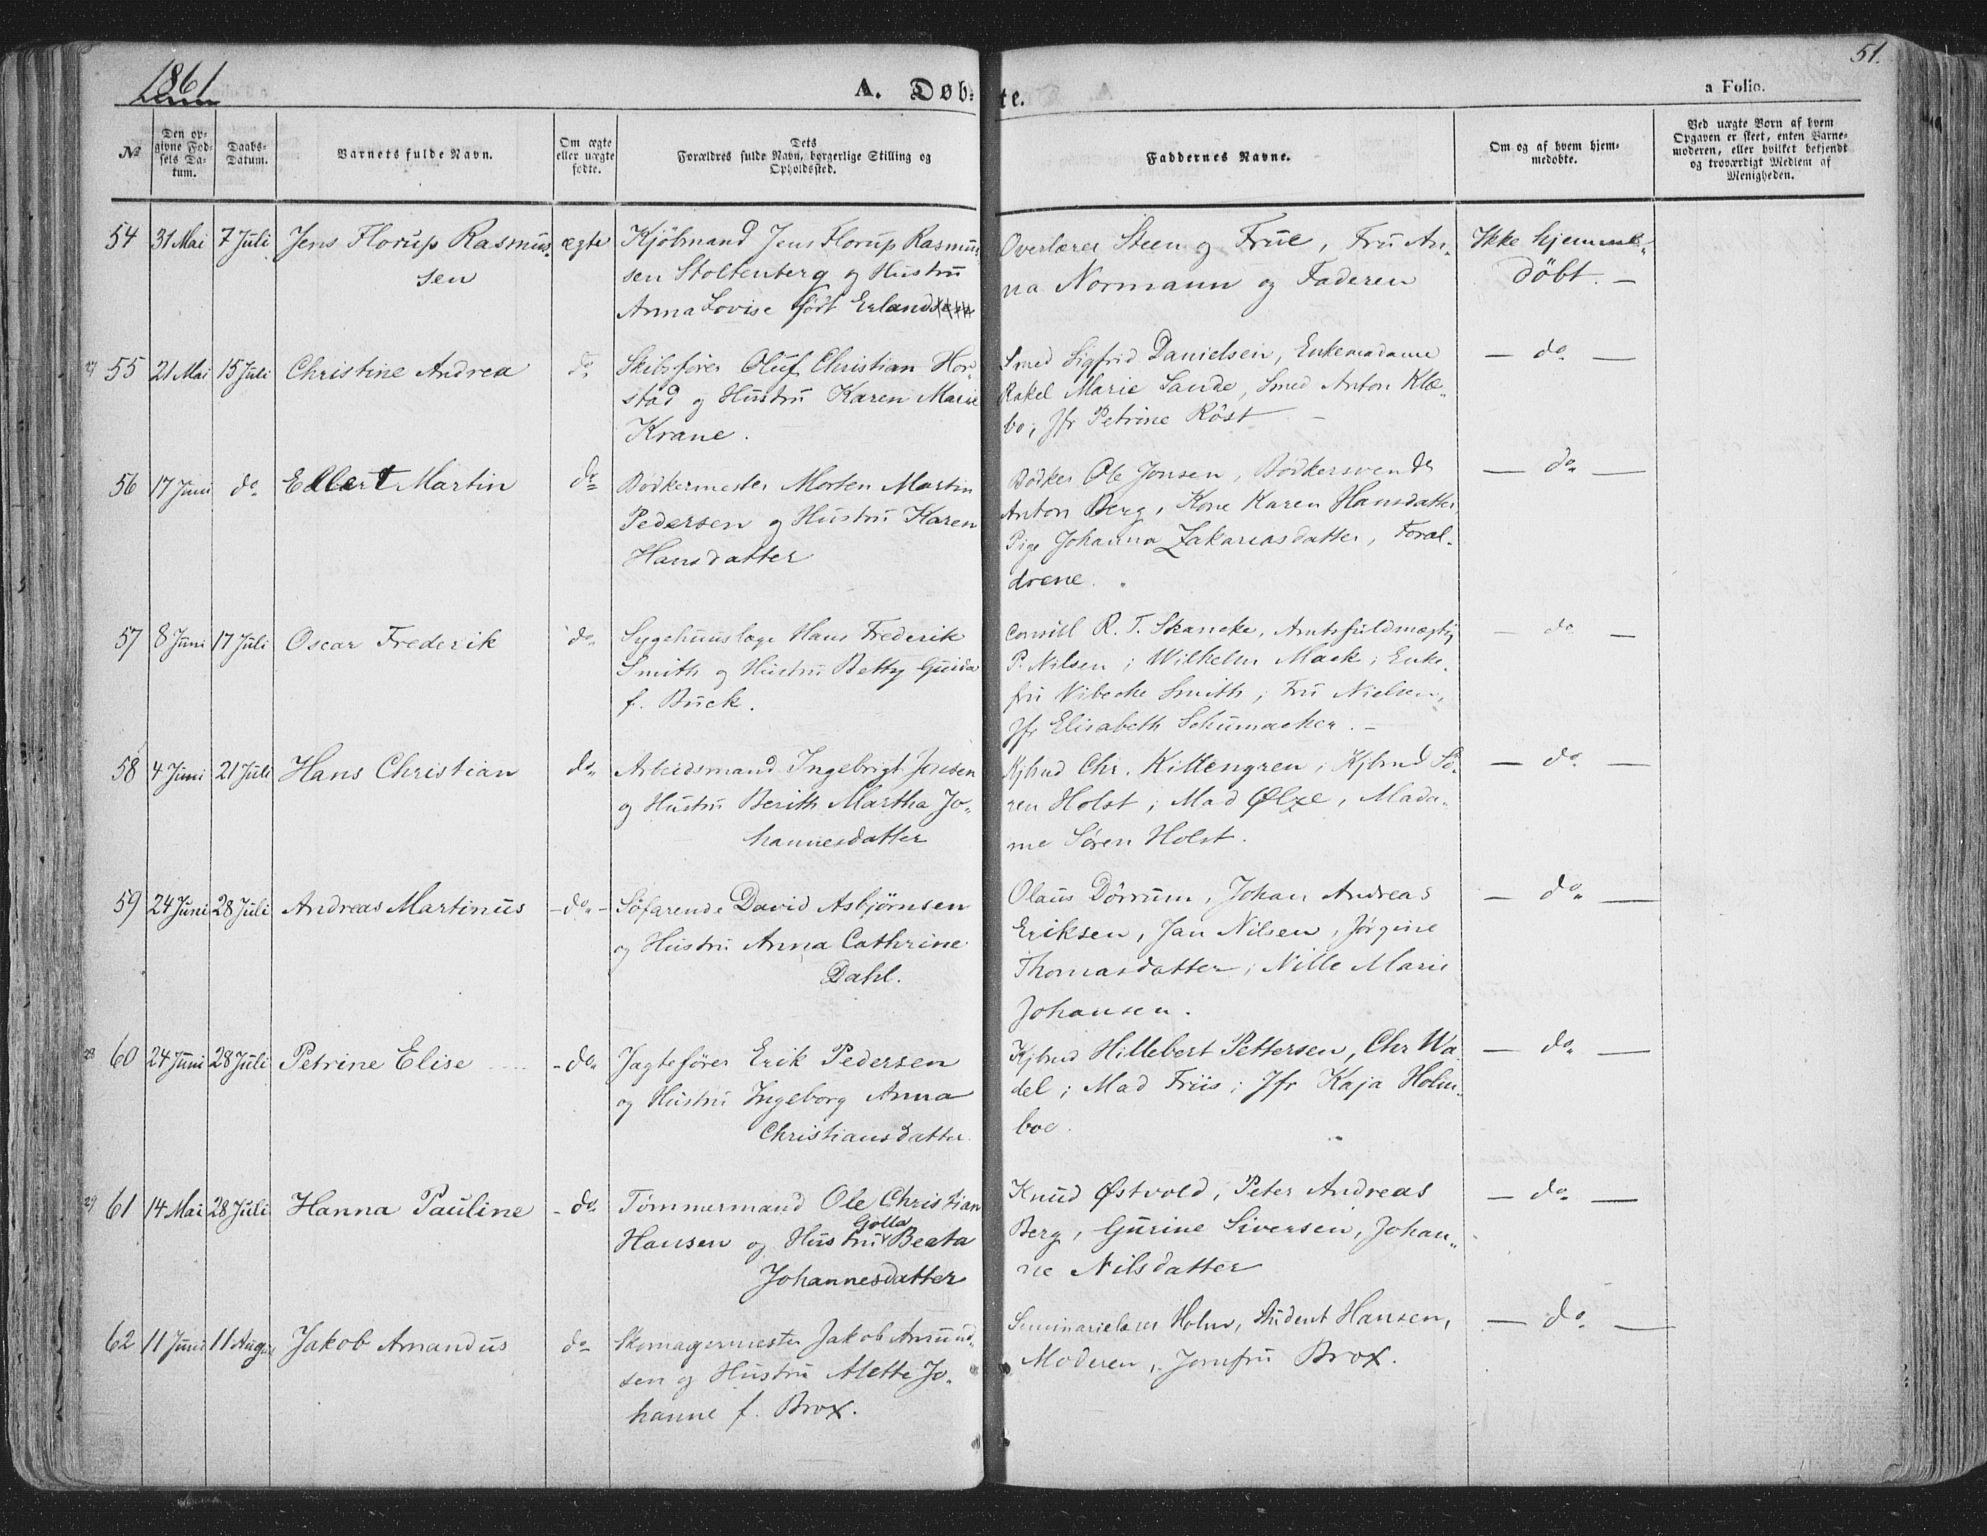 1861
A. Døbte.
51.
a Folio.
No
Den opgivne Fødsels Datum.
Daabs-Datum.
Barnets fulde Navn.
Om ægte eller uægte fødte.
Dets Forældres fulde Navn, borgerlige Stilling og Opholdssted.
Faddernes Navne.
Om og af hvem hjemmedøbte.
Ved uægte Børn af hvem Opgaven er skeet, enten Barnemoderen, eller hvilket bekjendt og troværdigt Medlem af Menigheden.
54 31 Mai 7 Juli Jens Florup Rasmus-
sen
ægte
Kjöbmand Jens Florup Rasmus
sen Stoltenberg og Hustru
Anna Lovise födt Erlands
Overlærer Steen og Frue, Fru An-
na Normann og Faderen
Ikke hjemme-
döbt. —
27 55 21 Mai 15 Juli Christine Andrea
do
Skibsförer Oluf Christian Hor-
stad og Hustru Karen Marie
Krane.
Smed Sigfrid Danielsen, Enkemadame
Rakel Marie Sande, Smed Anton Klæ-
bo, Jfr Petrine Röst —
— do —
56 17 Juni do Ellert Martin
do
Bödkermester Morten Martin
Pedersen og Hustru Karen
Hansdatter
Bödker Ole Jonsen, Bödkersvend
Anton Berg, Kone Karen Hansdatter,
Pige Johanna Zakariasdatter, Foræl-
drene.
— do —
57 8 Juni 17 Juli Oscar Frederik
do
Sygehuuslæge Hans Frederik
Smith og Hustru Betty Guida
f. Buck.
Consul R. T. Skancke, Amtsfuldmægtig
P. Nilsen, Wilhelm Mack, Enke-
fru Vibecke Smith, Fru Nielsen,
Jfr Elisabeth Schumacker. —
— do —
58 4 Juni 21 Juli Hans Christian
do
Arbeidsmand Ingebrigt Jensen
og Hustru Berith Martha Jo-
hannesdatter
Kjbmd Chr. Killengren, Kjbmd Sö-
ren Holst, Mad Ølxe, Mada-
me Søren Holst.
— do —
59 24 Juni 28 Juli Andreas Martinus
— do —
Söfarende David Asbjørnsen
og Hustru Anna Cathrine
Dahl.
Olaus Dörrum, Johan Andreas
Eriksen, Jan Nilsen, Jörgine
Thomasdatter, Nille Marie
Johansen.
— do —
28 60 24 Juni 28 Juli Petrine Elise
— do
Jagteförer Erik Pedersen
og Hustru Ingeborg Anna
Christiansdatter
Kjbmd Hillebert Pettersen, Chr Wa-
del, Mad Friis, Jfr Kaja Holm-
boe.
— do —
29 61 14 Mai 28 Juli Hanna Pauline
— do
Tömmermand Ole Christian
Golla
Hansen og Hustru Beata
Johannesdatter
Knud Østvold, Peter Andreas
Berg, Gurine Siversen, Johan-
ne Nilsdatter
— do —
62 11 Juni 11 August Jakob Amandus
do
Skomagermester Jakob Amund-
sen og Hustru Alette Jo-
hanne f. Brox.
Seminarielærer Holm, Student Hansen,
Moderen, Jomfru Brox.
— do —